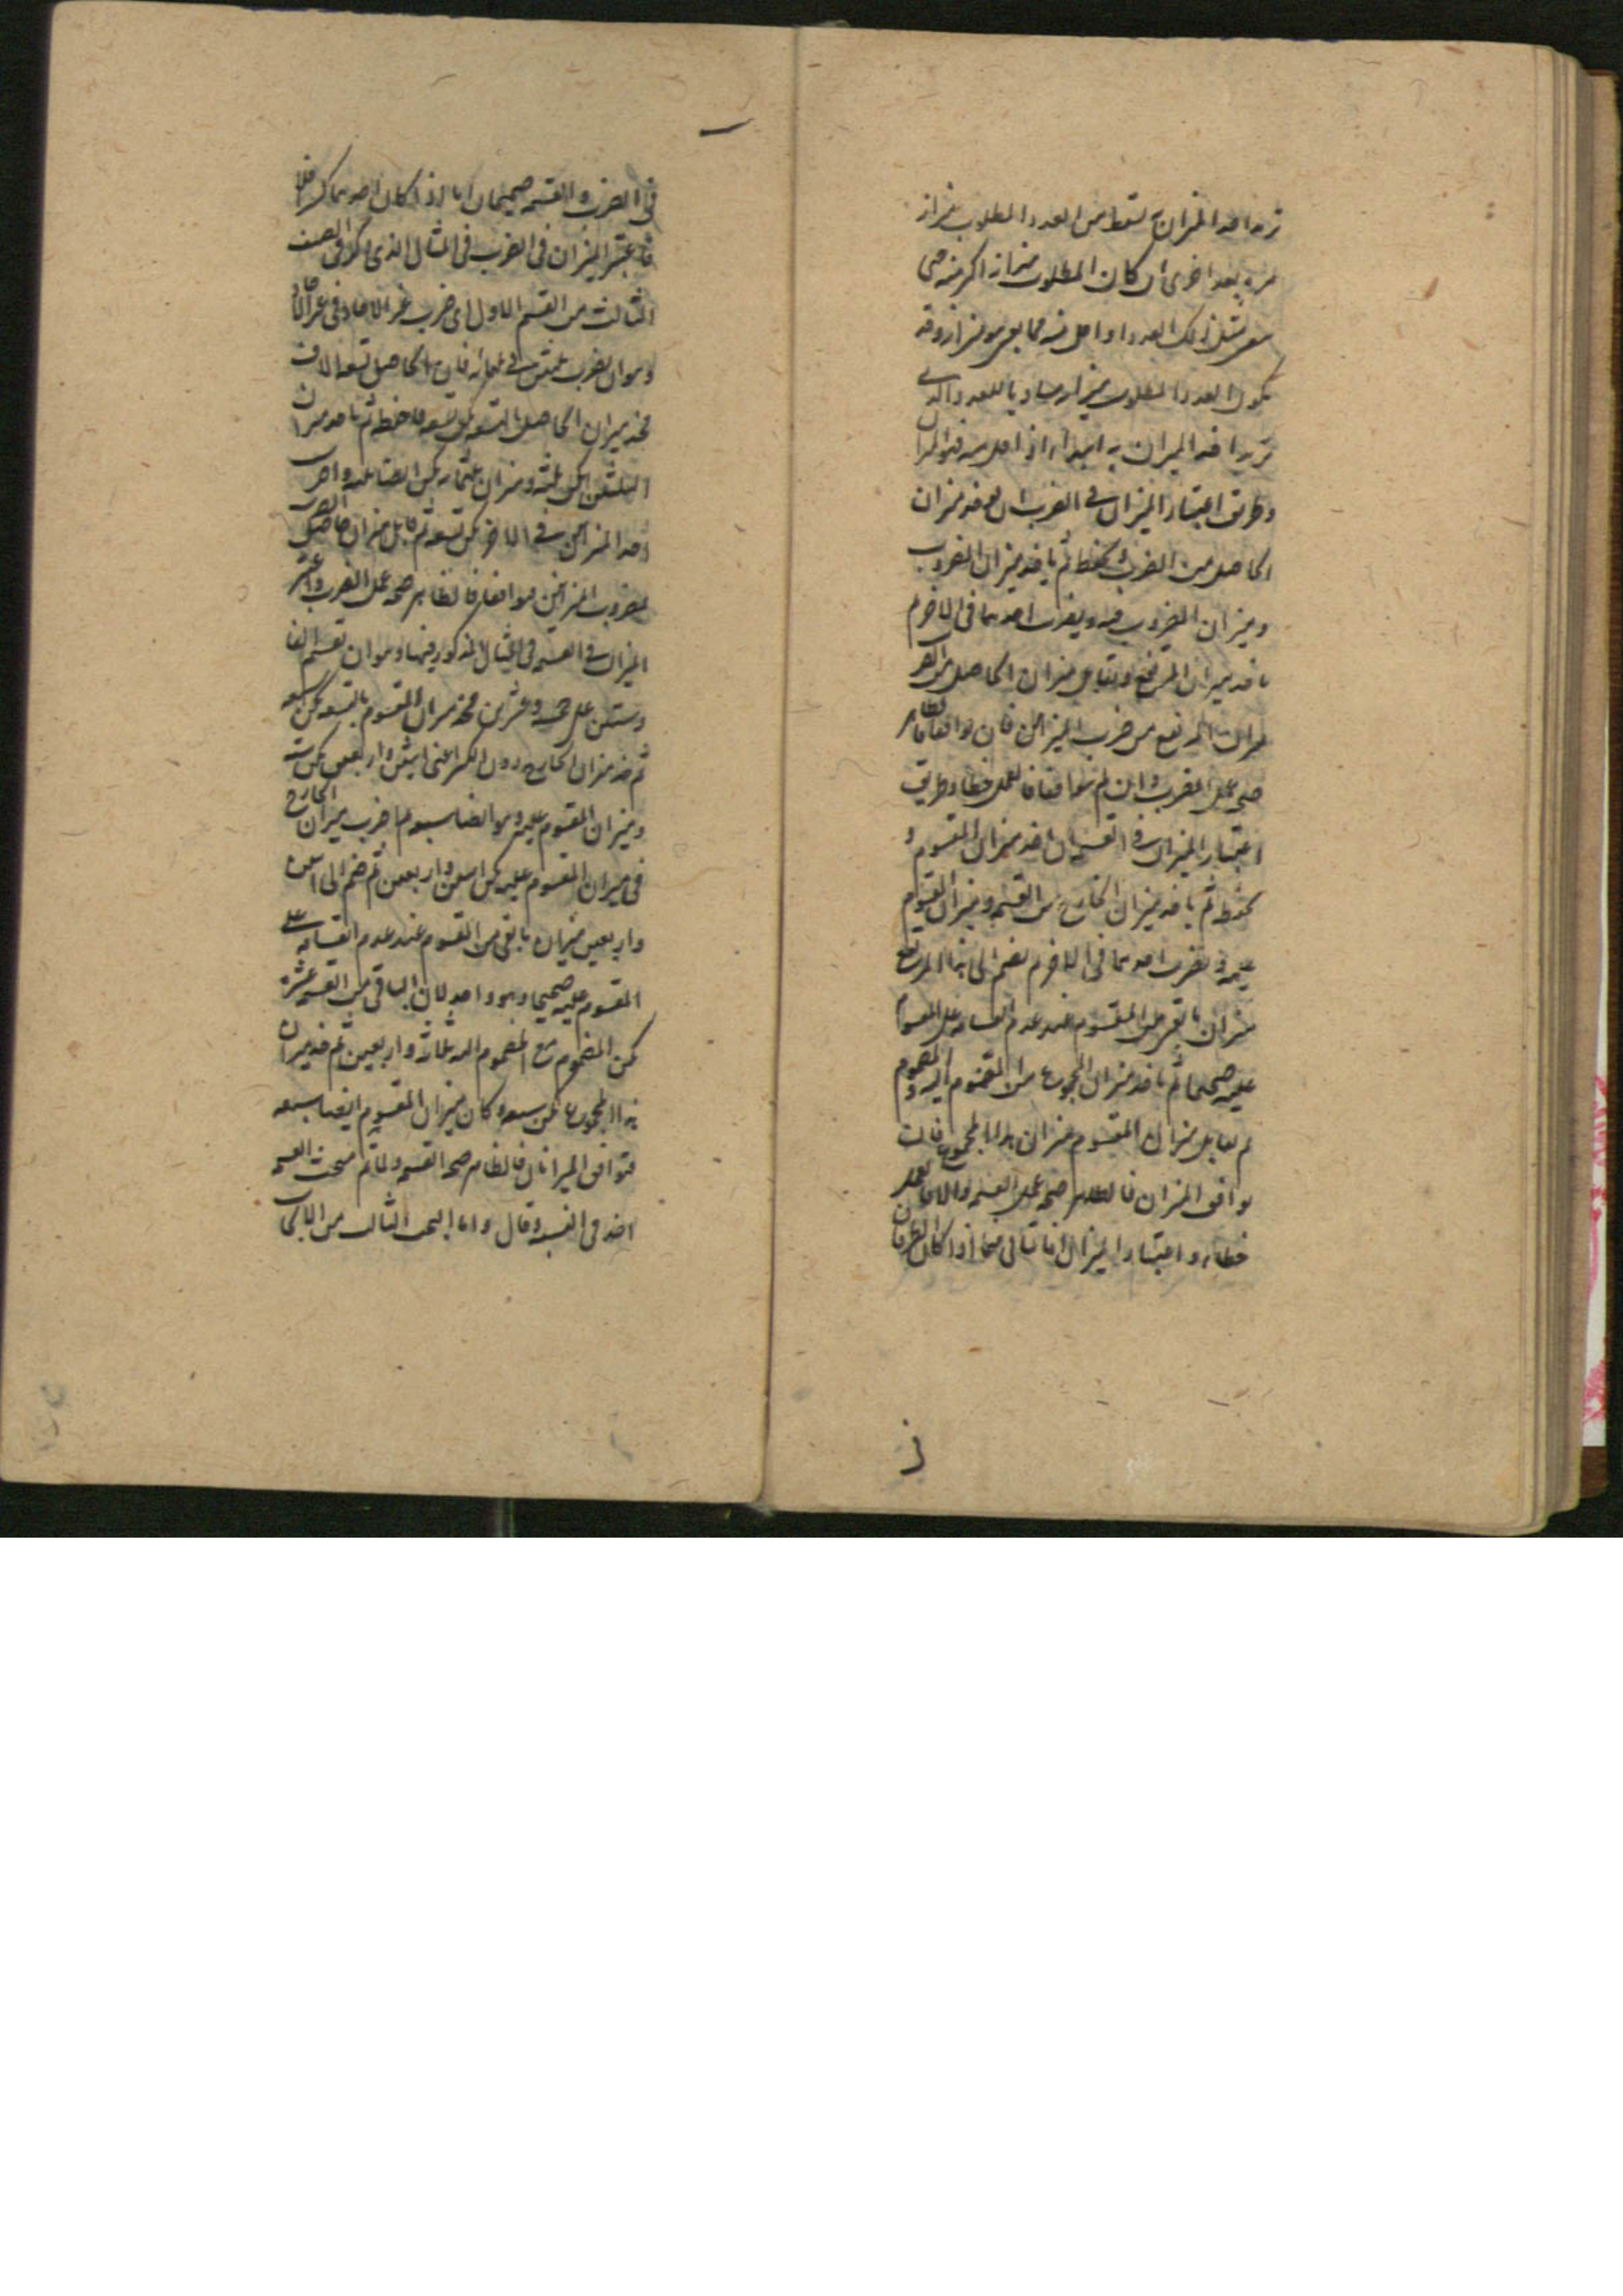 تريد اخذ الميزان به تسقط من العدد المطلوب ميزانه
مرة بعد اخرى ان كان المطلوب ميزانه اكثر منه حتى
يبقى مثل ذلك العدد او اقل منه فما بقى هو ميزانه وقد
يكون العدد المطلوب ميزانه مساويا للعدد الذي
تريد اخذ الميزان به ابتداء او اقل منه فهو الميزان
وطريق اعتبار الميزان في الضرب ان تاخذ ميزان
الحاصل من الضرب وتحفظه ثم تاخذ ميزان المضروب
وميزان المضروب فيه وتضرب احدهما في الاخر ثم
تاخذ ميزان المرتفع وتقابل ميزان الحاصل من الضرب
بميزان المرتفع من ضرب الميزانين فان توافقا فالظاهر
صحة عمل الضرب وان لم يتوافقا فالعمل خطا وطريق
اعتبار الميزان في القسمة ان تاخذ ميزان المقسوم و
تحفظه ثم تاخذ ميزان الخارج من القسمة وميزان المقسوم
عليه وتضرب احدهما في الاخر ثم تضم الى هذا المرتفع
ميزان ما بقى من المقسوم عند عدم انقسامه على المقسوم
عليه صحيحا ثم تاخذ ميزان المجموع من المضموم اليه والمضموم
ثم تقابل ميزان المقسوم بميزان هذا المجموع فان
توافق الميزان فالظاهر صحة عمل القسمة والا فالعمل
خطاء واعتبار الميزان انما يتاتى فيما اذا كان الطرفان
في الضرب والقسمة صحيحان اما اذا كان احدهما كسرا فلا
فاعتبر الميزان في الضرب في المثال الذي ذكر في الصنف
الثالث من القسم الاول اي ضرب غير الاحاد في غير الاحاد
وهو ان نضرب ثلثين في ثلثمائة فان الحاصل تسعة الاف
فخذ ميزان الحاصل بالتسعة يكن تسعة فاحفظه ثم تاخذ ميزان
الثلثين يكن ثلثة وميزان ثلثمائة يكن ايضا ثلثة واضرب
احد الميزانين في الاخر يكن تسعة ثم قابل ميزان حاصل الضرب
بمضروب الميزانين توافقا فالظاهر صحة عمل الضرب واعتبر
الميزان في القسمة في المثال المذكور فيها وهو ان تقسم الفا
وستين على خمسة وعشرين فخذ ميزان المقسوم بالتسعة يكن سبعة
ثم خذ ميزان الخارج دون الكسر اعني اثنين واربعين يكن ستة
وميزان المقسوم عليه وهو ايضا سبعة ثم اضرب ميزان الخارج
في ميزان المقسوم عليه يكن اثنين واربعين ثم ضم الى اثنين
واربعين ميزان ما بقى من المقسوم عند عدم انقسامه على
المقسوم عليه صحيحا وهو واحد لان الباقي من القسمة عشرة
يكن المضموم مع المضموم اليه ثلاثة واربعين ثم خذ ميزان
هذا المجموع يكن سبعة وكان ميزان المقسوم ايضا سبعة
فتوافق الميزانان فالظاهر صحة القسمة ولما تم مبحث القسمة
اخذ في النسبة وقال واما البحث الثالث من الابحاث